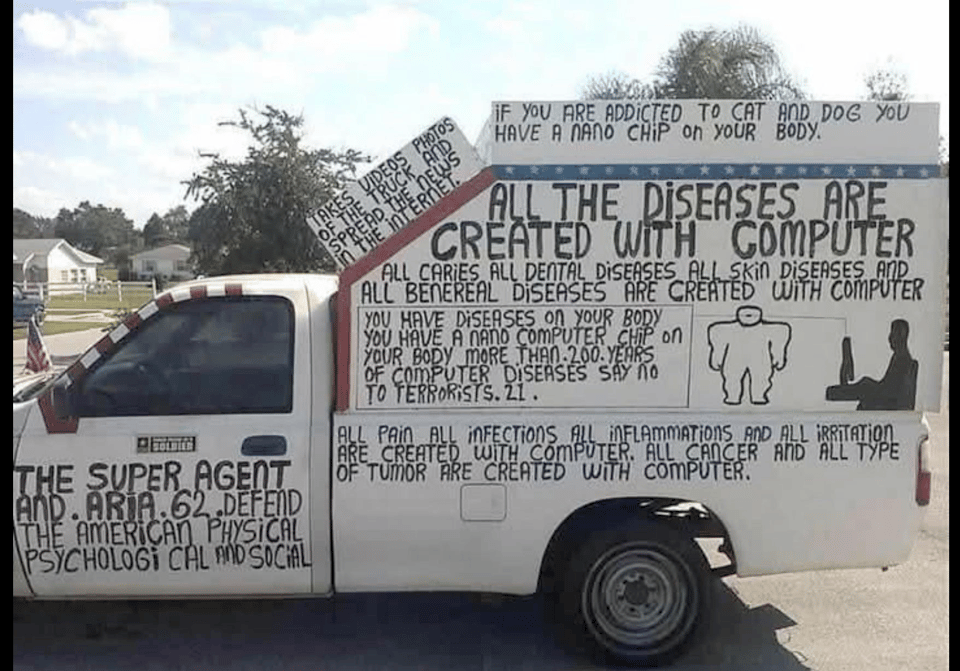 IF YOU ARE ADDICTED TO CAT AND DOG YOU
HAVE A NANO CHiP On YOUR BODY.
TAKES VIDEOS PHOTOS
OF THE TRUCK AND
SPREAD THE NEWS
IN THE INTERNET.
ALL THE DiSEASES ARE
CREATED WiTH COMPUTER
ALL CARiES ALL DENTAL DiSEASES ALL SKin DiSEASES AND
ALL BENEREAL DiSEASES ARE CREATED WiTH COMPUTER
YOU HAVE DiSEASES On YOUR BODY
YOU HAVE A nAnO COMPUTER CHiP on
YOUR BODY MORE THAN.200.YEARS
OF COMPUTER DiSEASES SAY nO
TO TERRORiSTS.21.
ALL PAin ALL inFECTiOnS ALL inFLAMMATiOnS AND ALL iRRiTATiOn
ARE CREATED WiTH COMPUTER. ALL CANCER AND ALL TYPE
OF TUMOR ARE CREATED WiTH COMPUTER.
SOLDIER
THE SUPER AGENT
AND.ARiA.62.DEFEND
THE AMERiCAn PHYSiCAL
PSYCHOLOGi CAL AND SOCiAL